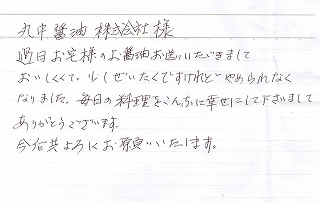 丸中醤油 株式会社 様
過日お宅様のお醤油お送りいただきまして
おいしくて、少しぜいたくですけれどやめられなく
なりました。毎日の料理をこんなに幸せにして下さいまして
ありがとうございます。
今后共よろしくお願いいたします。